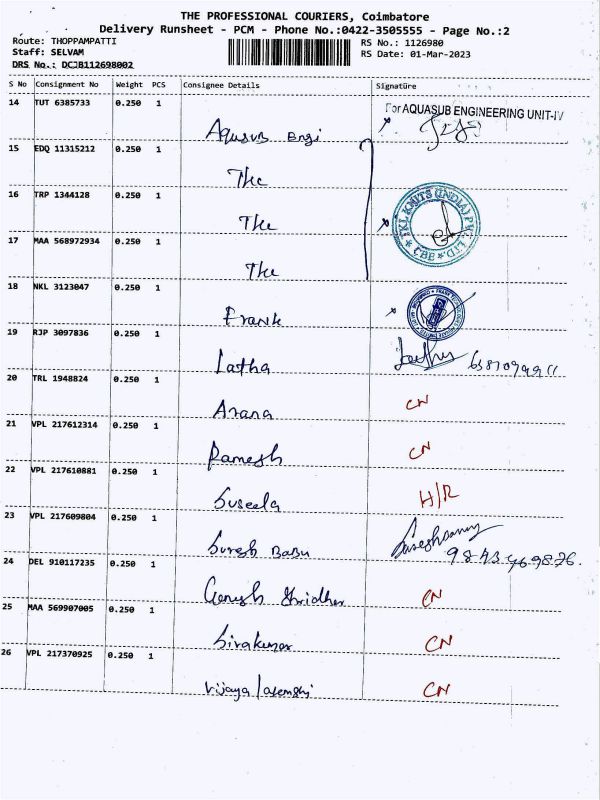 THE PROFESSIONAL COURIERS, Coimbatore
Delivery Runsheet - PCM - Phone No.:0422-3505555 - Page No.:2
Route: THOPPAMPATTI
RS No.: 1126980
Staff: SELVAM
RS Date: 01-Mar-2023
DRS No.: DCJB112698002
S No Consignment No Weight PCS Consignee Details Signature
14 TUT 6385733 0.250 1 Aqusub Engi For AQUASUB ENGINEERING UNIT-IV
15 EDQ 11315212 0.250 1 The
16 TRP 1344128 0.250 1 The
TKL KNITS (INDIA) PVT LTD. * CBE *
17 MAA 568972934 0.250 1 The
18 NKL 3123047 0.250 1 Frank
19 RJP 3097836 0.250 1 Latha
20 TRL 1948824 0.250 1 Arana CN
21 VPL 217612314 0.250 1 Ramesh CN
22 VPL 217610881 0.250 1 Suseela H/R
23 VPL 217609804 0.250 1 Suresh Babu
24 DEL 910117235 0.250 1 Ganesh Shridher CN
25 MAA 569907005 0.250 1 Sivakumar CN
26 VPL 217370925 0.250 1 Vijaya CN